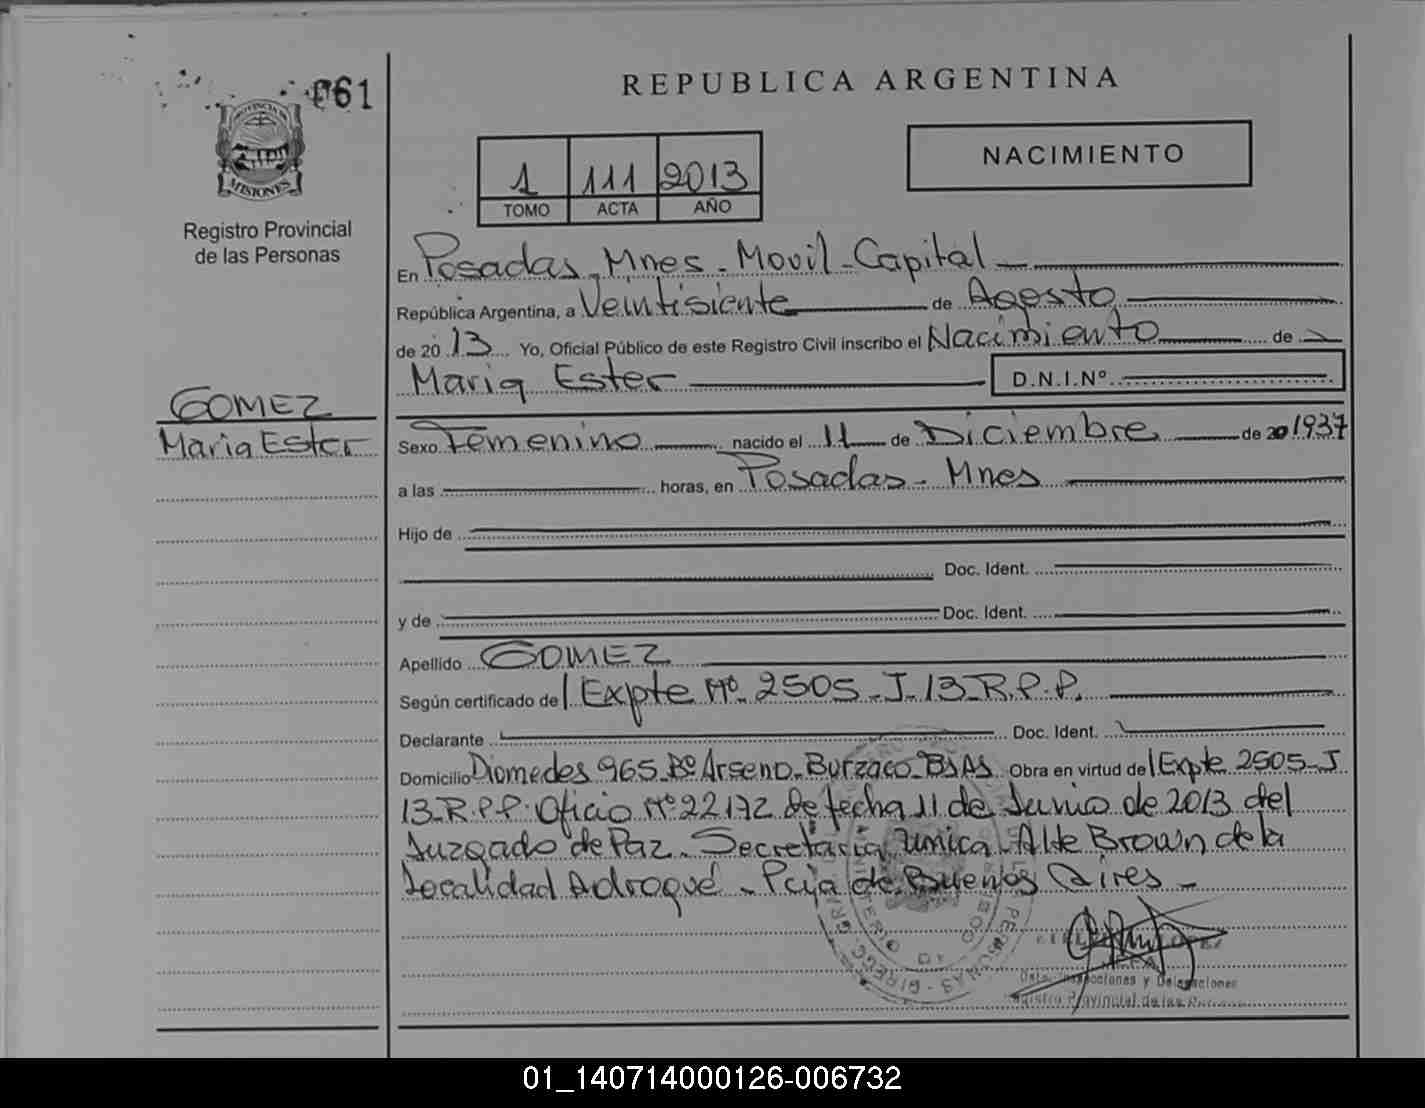 061
REPUBLICA ARGENTINA
PROVINCIA DE
MISIONES
Registro Provincial
de las Personas
1 111 2013
TOMO ACTA AÑO
NACIMIENTO
En Posadas - Mnes - Movil - Capital
República Argentina, a Veintisiente de Agosto
de 20 13 Yo, Oficial Público de este Registro Civil inscribo el Nacimiento de
Maria Ester D.N.I.Nº
GOMEZ
Maria Ester
Sexo Femenino nacido el 11 de Diciembre de 20 1937
a las horas, en Posadas - Mnes
Hijo de
Doc. Ident.
y de Doc. Ident.
Apellido GOMEZ
Según certificado de Expte Nº 2505-J-13-R.P.P.
Declarante Doc. Ident.
Domicilio Diomedes 965 Bº Arseno - Burzaco - Bs As Obra en virtud de Expte 2505-J
13-R.P.P. Oficio Nº 22172 de fecha 11 de Junio de 2013 del
Juzgado de Paz - Secretaria unica - Alte Brown de la
Localidad Adrogué - Pcia de Buenos Aires -
Dpto. Inspecciones y Delegaciones
Registro Provincial de las
01_140714000126-006732